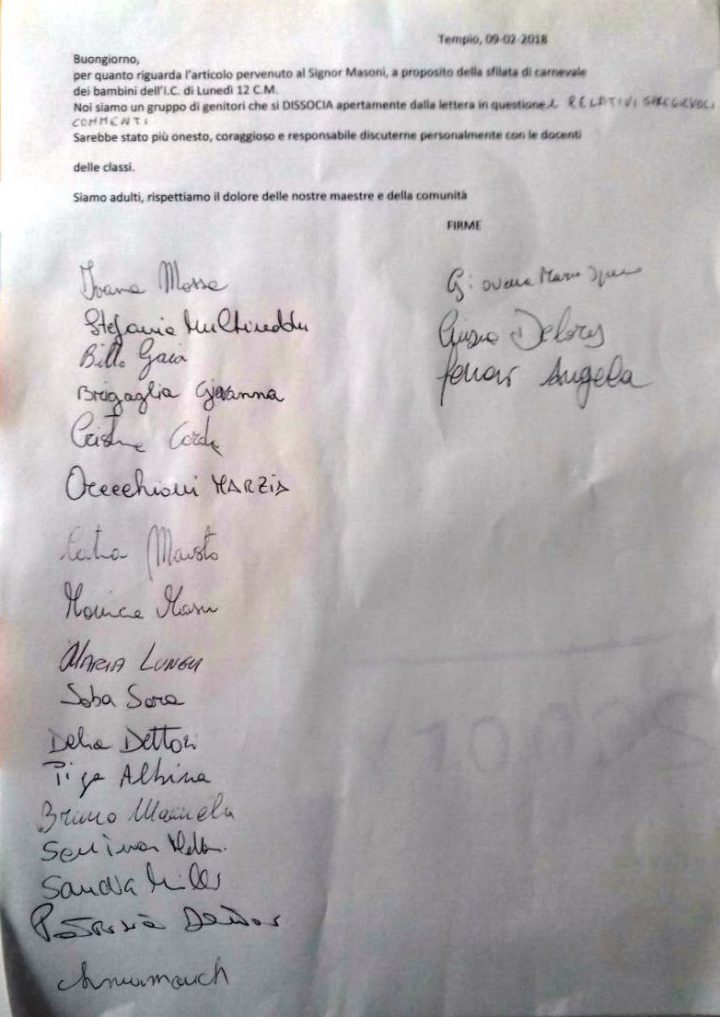 Tempio, 09-02-2018
Buongiorno,
per quanto riguarda l'articolo pervenuto al Signor Masoni, a proposito della sfilata di carnevale
dei bambini dell'I.C. di Lunedì 12 C.M.
Noi siamo un gruppo di genitori che si DISSOCIA apertamente dalla lettera in questione E RELATIVI SPREGIEVOLI
COMMENTI
Sarebbe stato più onesto, coraggioso e responsabile discuterne personalmente con le docenti
delle classi.
Siamo adulti, rispettiamo il dolore delle nostre maestre e della comunità
FIRME
Ivana Mossa
Stefania Multineddu
Billo Gaia
Brigaglia Giovanna
Cristina Corda
Orecchioni MARZIA
Monica Masu
MARIA LUNGU
Soba Sara
Delia Dettori
Piga Albina
Bruno Manuela
Sandra
Patrizia
Giovanna Maria
Delores
Angela